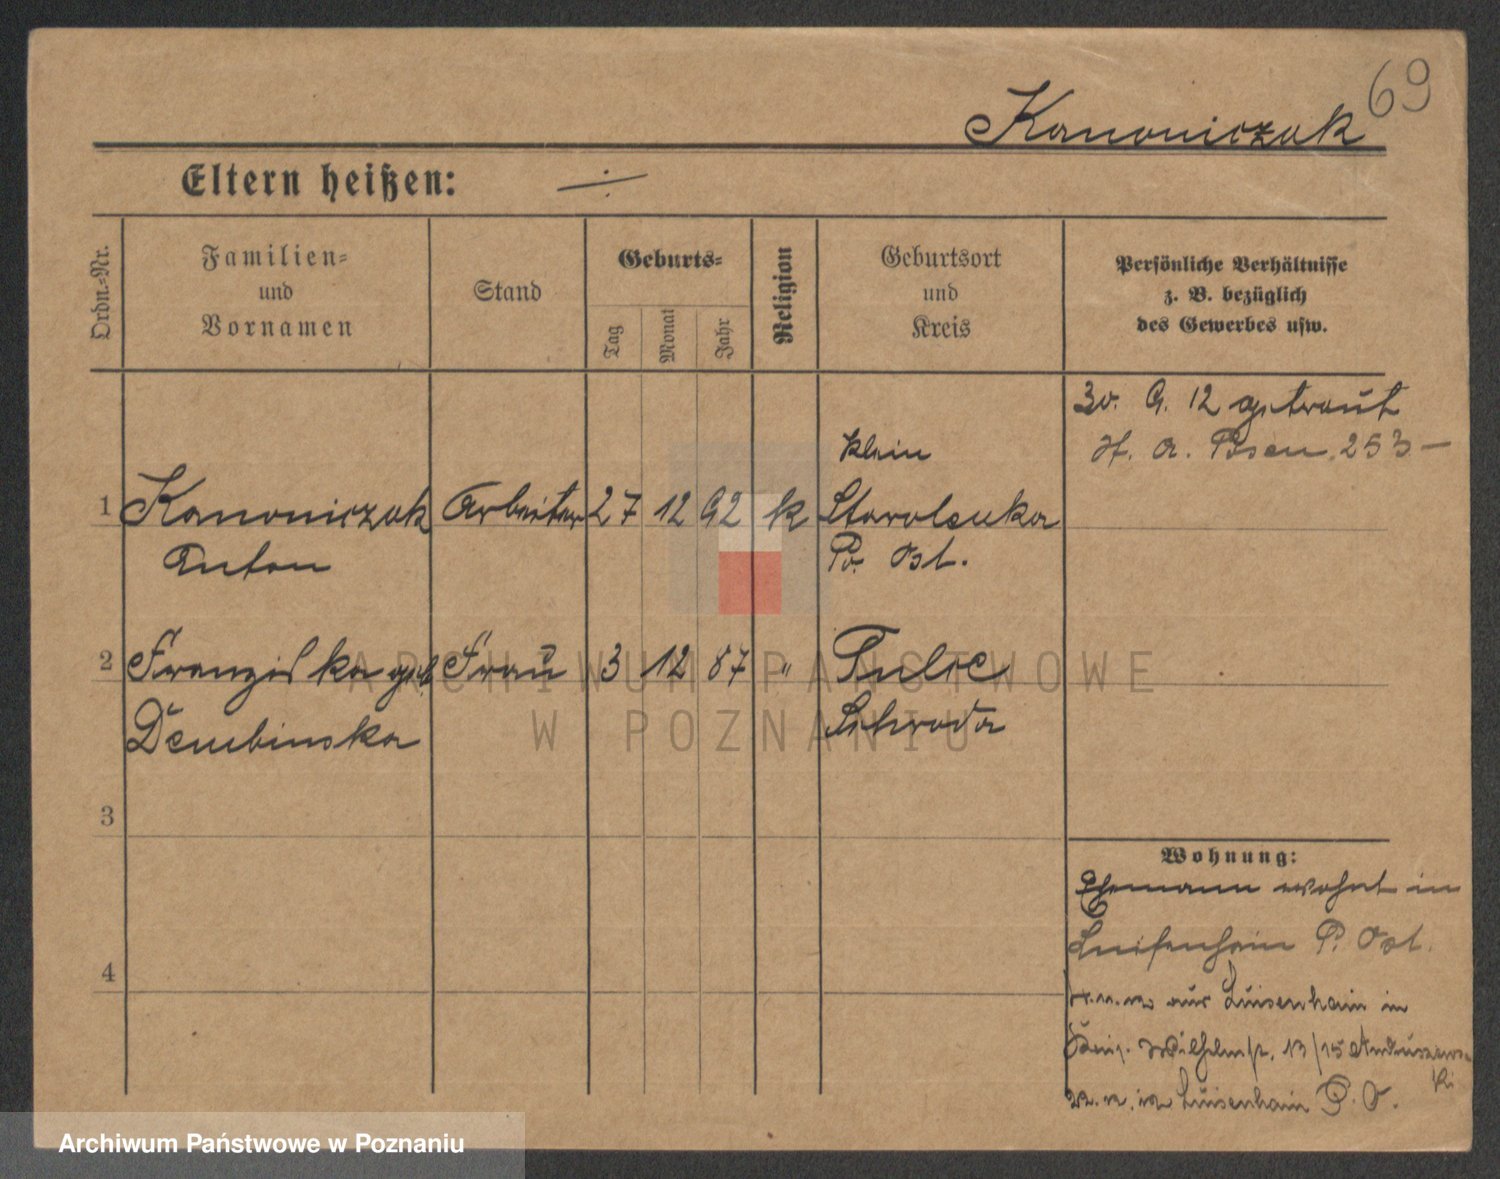 69
Kanoniczak
Eltern heißen: ÷
Ordn.-Nr.
Familien-
und
Vornamen
Stand
Geburts-
Tag
Monat
Jahr
Religion
Geburtsort
und
Kreis
Persönliche Verhältnisse
z. B. bezüglich
des Gewerbes usw.
30. 9. 12 getraut
H. A. Posen 253 —
klein
1 Kanoniczak Arbeiter 27 12 92 k Starolenka
Anton Po. Ost.
2 Franziska geb Frau 3 12 87 " Tulce
Dembinska Schroda
3
4
Wohnung:
Ehemann wohnt in
Luisenhain P. Ost.
aus Luisenhain in
13/15
in Luisenhain P. O.
ARCHIWUM PAŃSTWOWE
W POZNANIU
Archiwum Państwowe w Poznaniu